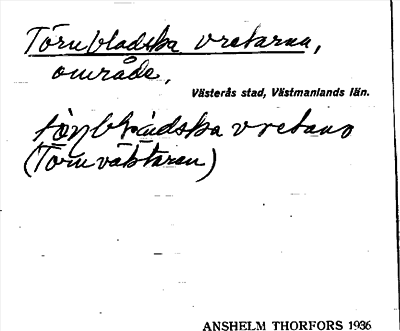 Törnbladska vretarna,
område,
Västerås stad, Västmanlands län.
vretano
(Törnväktaren)
ANSHELM THORFORS 1936